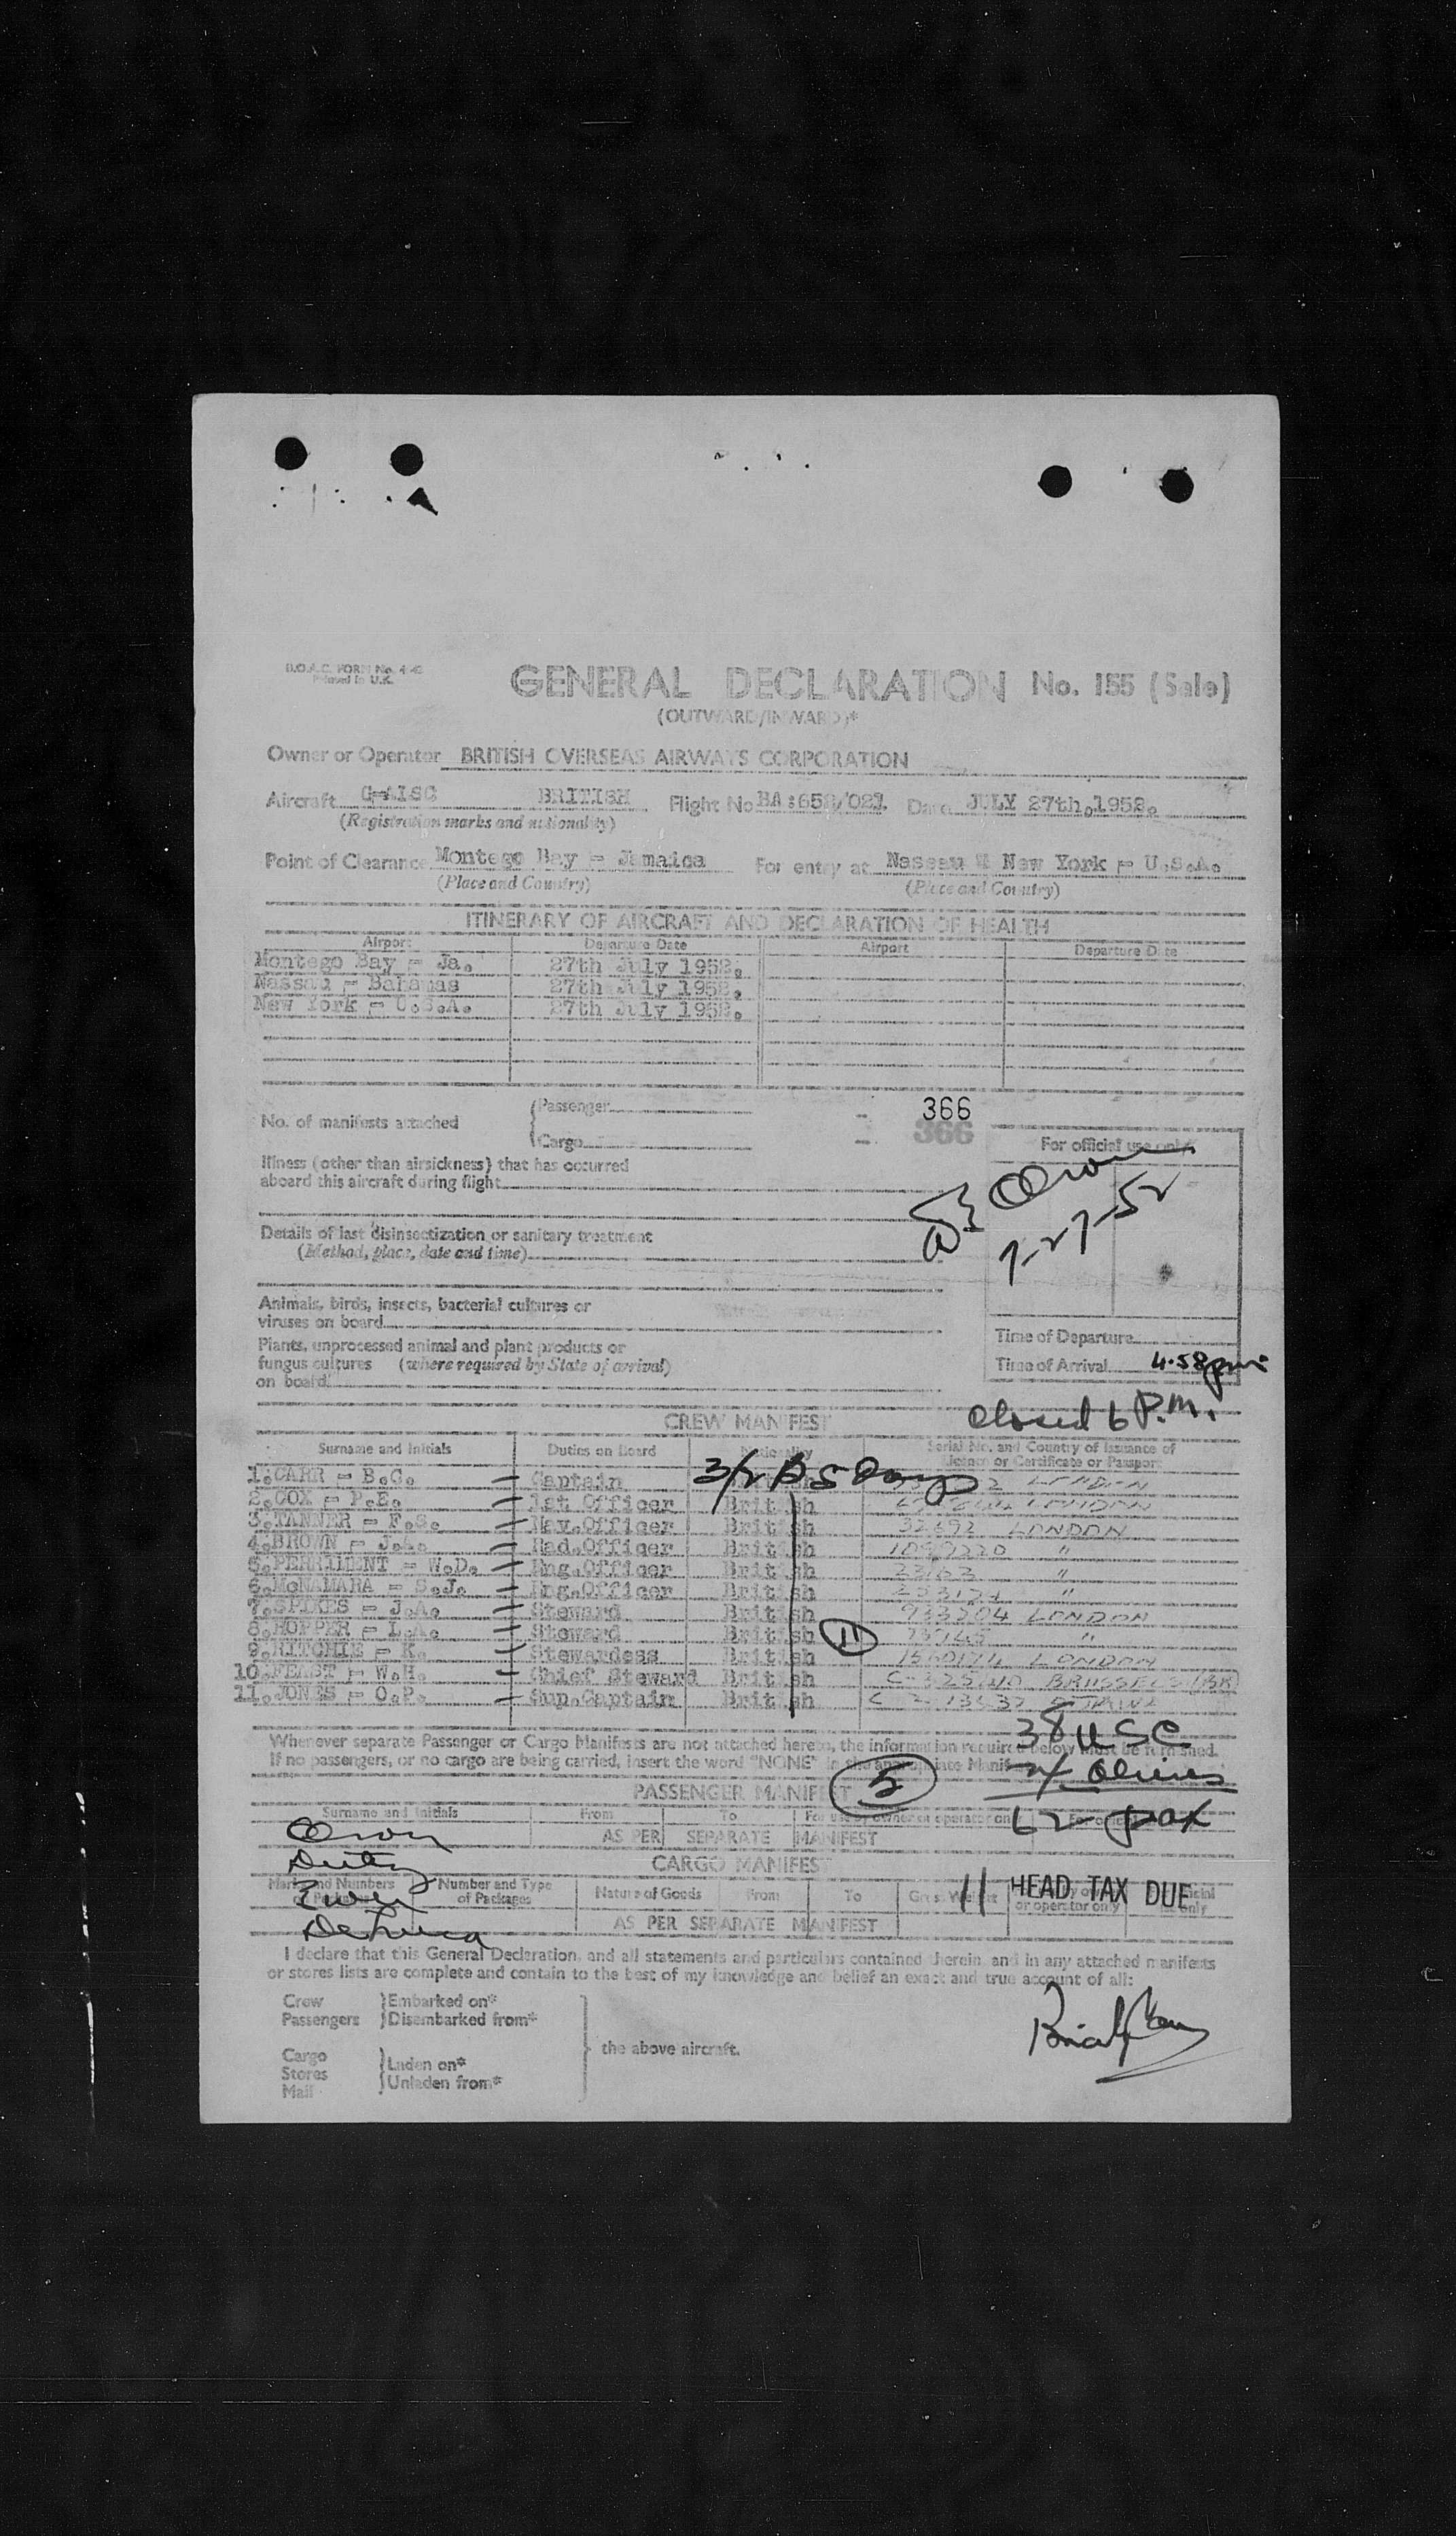 B.O.A.C. FORM No. 4-42
Printed in U.K.
GENERAL DECLARATION No. 155 (Sale)
(OUTWARD/INWARD)*
Owner or Operator BRITISH OVERSEAS AIRWAYS CORPORATION
Aircraft G-AISC BRITISH Flight No BA:652/021 Date JULY 27th.1952.
(Registration marks and nationality)
Point of Clearance Montego Bay - Jamaica For entry at Nassau & New York - U.S.A.
(Place and Country) (Place and Country)
ITINERARY OF AIRCRAFT AND DECLARATION OF HEALTH
Airport Departure Date Airport Departure Date
Montego Bay - Ja. 27th July 1952.
Nassau - Bahamas 27th July 1952.
New York - U.S.A. 27th July 1952.
No. of manifests attached { Passenger 366
Cargo 366
For official use only
Illness (other than airsickness) that has occurred
aboard this aircraft during flight
7-27-52
Details of last disinsectization or sanitary treatment
(Method, place, date and time)
Animals, birds, insects, bacterial cultures or
viruses on board
Plants, unprocessed animal and plant products or
fungus cultures (where required by State of arrival)
on board
Time of Departure
Time of Arrival 4.58 pm
closed 6 P.M.
CREW MANIFEST
Surname and Initials Duties on Board Nationality Serial No. and Country of Issuance of
Licence or Certificate or Passport
3/2 B 5 Days
1.CARR - B.C. Captain LONDON
2.COX - P.E. 1st Officer British LONDON
3.TANNER - F.S. Nav.Officer British 32692 LONDON
4.BROWN - J.A. Rad.Officer British 1099220 "
5.PERRIMENT - W.D. Eng.Officer British "
6.McNAMARA - S.J. Eng.Officer British "
7.SPIKES - J.A. Steward British 933204 LONDON
8.HOPPER - L.A. Steward British 11 "
9.RITCHIE - K. Stewardess British LONDON
10.FEAST - W.H. Chief Steward British C-325210 BRUSSELS (BR)
11.JONES - O.P. Sup.Captain British
38 USC
Whenever separate Passenger or Cargo Manifests are not attached hereto, the information required below must be furnished.
If no passengers, or no cargo are being carried, insert the word "NONE" in the appropriate Manifest
24 Aliens
5
PASSENGER MANIFEST
Surname and Initials From To For use by owner or operator only
62 pax
AS PER SEPARATE MANIFEST
CARGO MANIFEST
Marks and Numbers Number and Type
of Packages Nature of Goods From To Gross Weight or operator only
11 HEAD TAX DUE
AS PER SEPARATE MANIFEST
I declare that this General Declaration, and all statements and particulars contained therein and in any attached manifests
or stores lists are complete and contain to the best of my knowledge and belief an exact and true account of all:
Crew } Embarked on*
Passengers } Disembarked from*
the above aircraft.
Cargo
Stores } Laden on*
Mail } Unladen from*